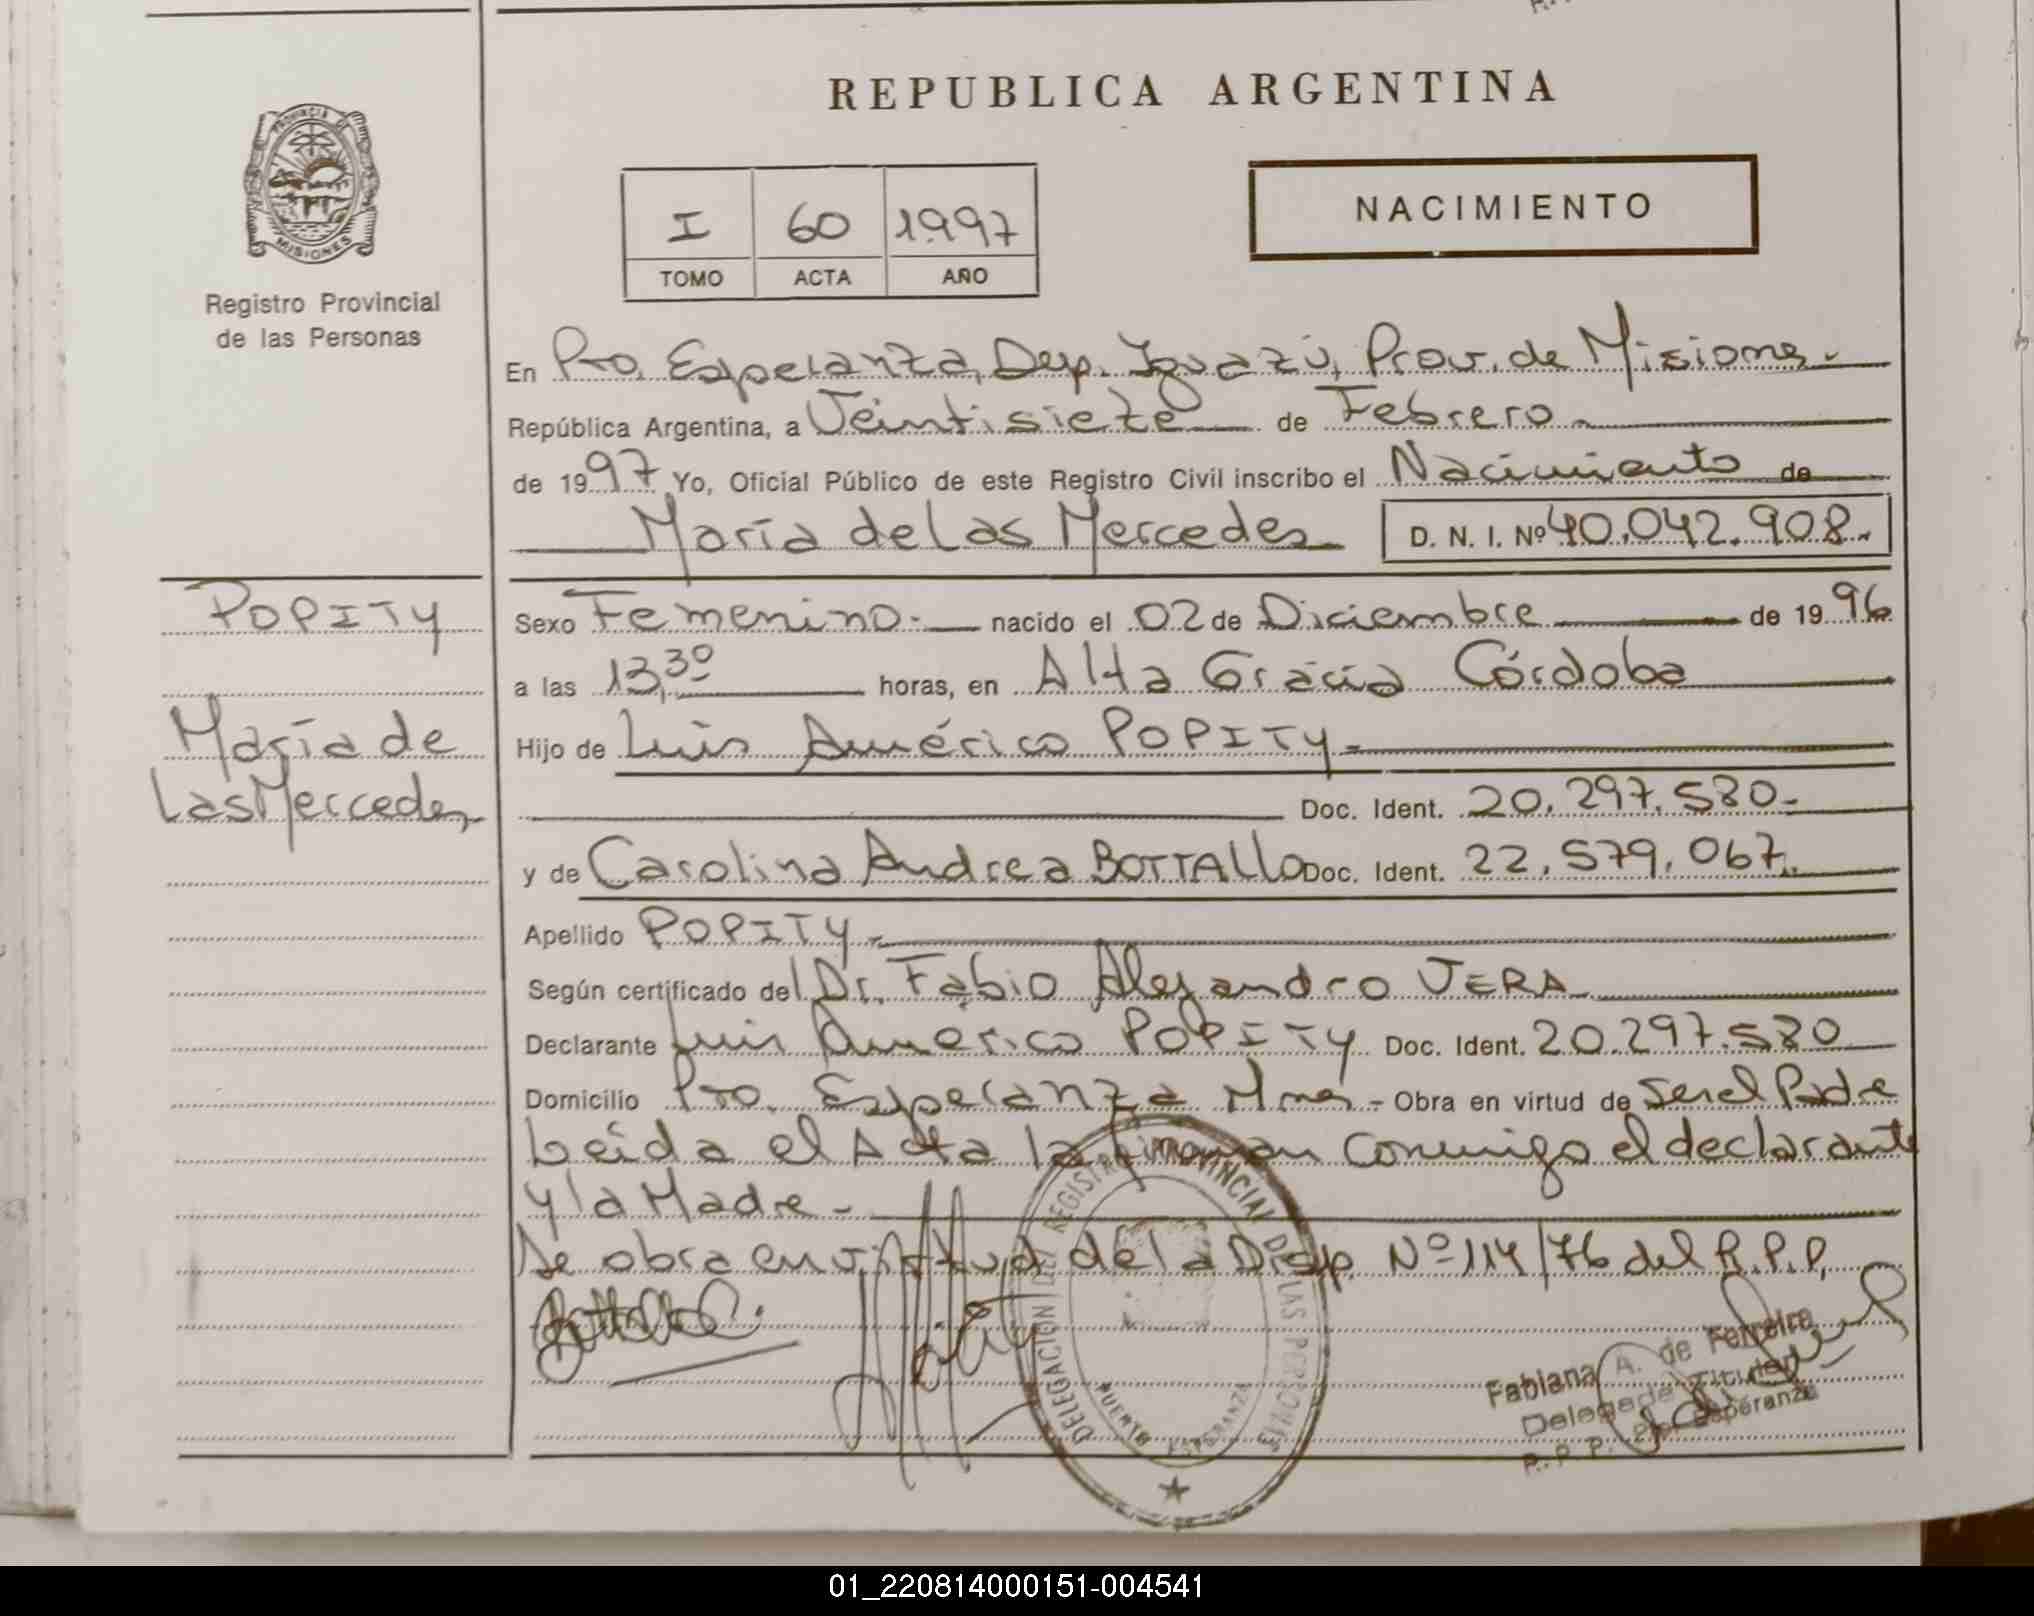 REPUBLICA ARGENTINA
PROVINCIA DE
MISIONES
Registro Provincial
de las Personas
I 60 1.997
TOMO ACTA AÑO
NACIMIENTO
En Pto. Esperanza, Dep. Iguazú, Prov. de Misiones.-
República Argentina, a Veintisiete de Febrero.-
de 1997 Yo, Oficial Público de este Registro Civil inscribo el Nacimiento de
María de Las Mercedes D. N. I. Nº 40.042.908.-
POPITY
María de
Las Mercedes
Sexo Femenino.- nacido el 02 de Diciembre de 1996
a las 13,30 horas, en Alta Gracia Córdoba
Hijo de Luis Américo POPITY.-
Doc. Ident. 20.297.580.-
y de Carolina Andrea BOTTALLO Doc. Ident. 22.579.067.
Apellido POPITY.-
Según certificado del Dr. Fabio Alejandro VERA
Declarante Luis Américo POPITY Doc. Ident. 20.297.580
Domicilio Pto. Esperanza Mnes.- Obra en virtud de ser el Padre
Leida el Acta la firman conmigo el declarante
y la Madre.-
Se obra en virtud de la Disp. Nº 114/76 del R.P.P.
DELEGACION REGISTRO PROVINCIAL DE LAS PERSONAS
PUERTO ESPERANZA
Fabiana A. de Ferreira
Delegada Titular
R. P. P. Pto. Esperanza
01_220814000151-004541